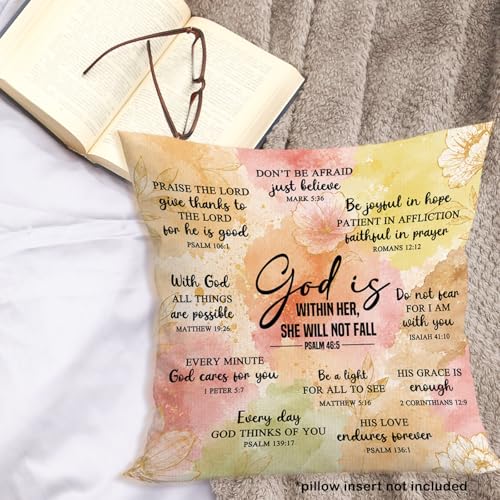 DON'T BE AFRAID
just believe
MARK 5:36
PRAISE THE LORD
give thanks to
THE LORD
for he is good
PSALM 106:1
Be joyful in hope
PATIENT IN AFFLICTION
faithful in prayer
ROMANS 12:12
With God
ALL THINGS
are possible
MATTHEW 19:26
God is
WITHIN HER,
SHE WILL NOT FALL
PSALM 46:5
Do not fear
FOR I AM
with you
ISAIAH 41:10
EVERY MINUTE
God cares for you
1 PETER 5:7
Be a light
FOR ALL TO SEE
MATTHEW 5:16
HIS GRACE IS
enough
2 CORINTHIANS 12:9
Every day
GOD THINKS OF YOU
PSALM 139:17
HIS LOVE
endures forever
PSALM 136:1
pillow insert not included